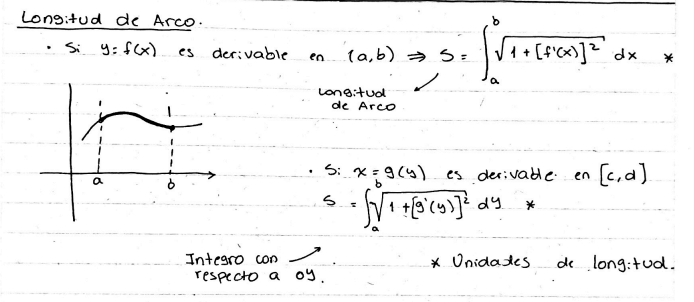 Longitud de Arco.
• Si y=f(x) es derivable en (a,b) ⇒ S = ∫_a^b √(1+[f'(x)]²) dx *
Longitud
de Arco
a b
• Si x=g(y) es derivable en [c,d]
S = ∫_a^b √(1+[g'(y)]²) dy *
Integro con
respecto a oy.
* Unidades de longitud.